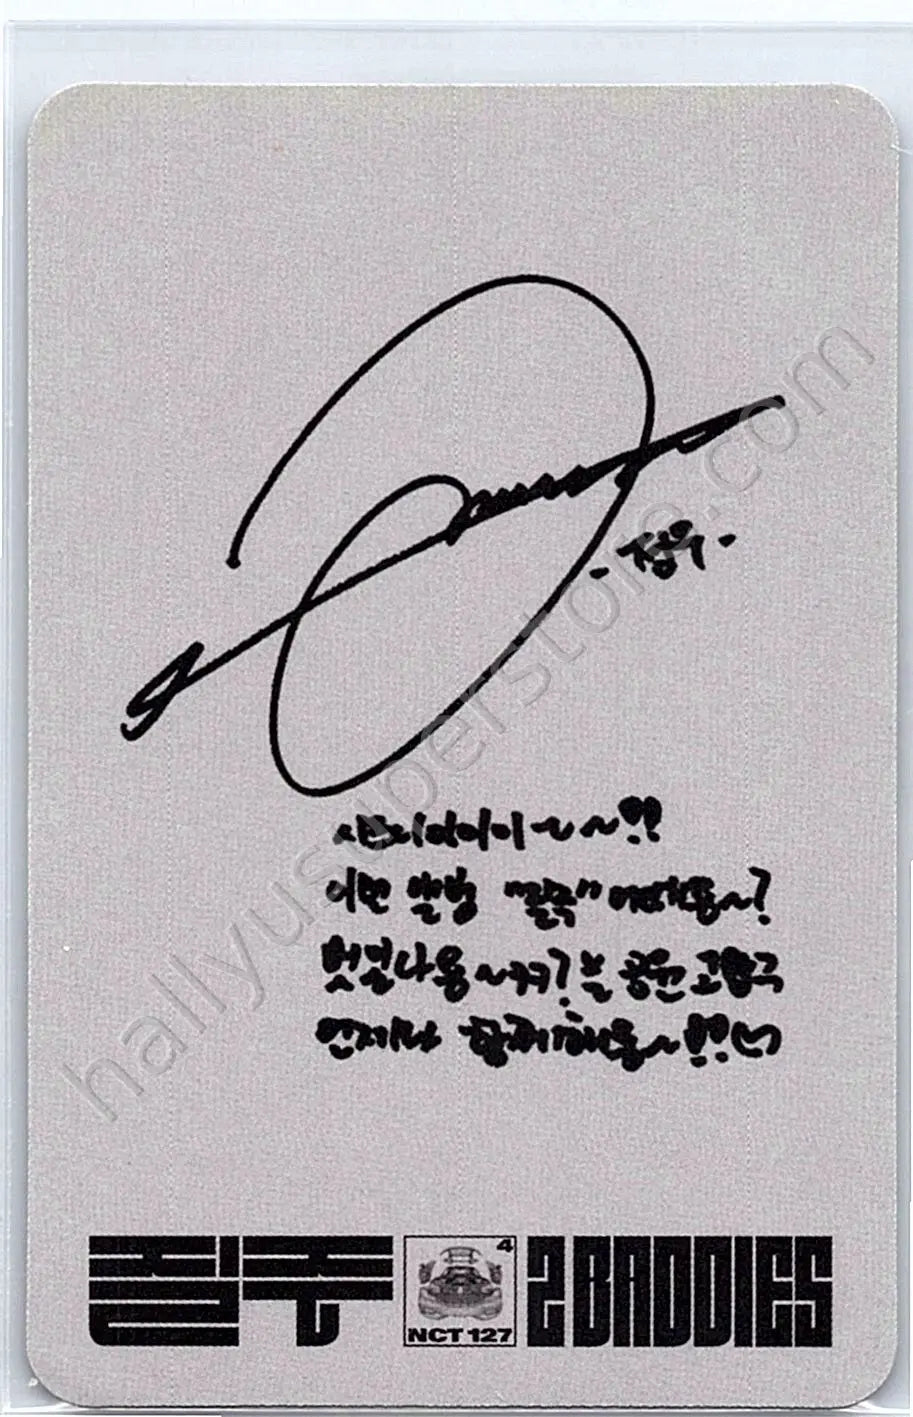 - 정우 -
시즈니이이이~~!!
이번 앨범 "질주" 어때욤~?
멋있나용~ㅋㅋ? 늘 공윤 고맙구
언제나 함께해용~!!
질주
4
NCT 127
2 BADDIES
hallyusuperstore.com